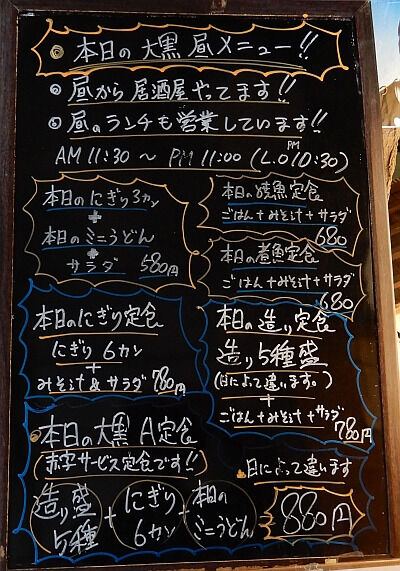 本日の大黒 昼メニュー!!
昼から居酒屋やってます!!
昼のランチも営業しています!!
AM 11:30 〜 PM 11:00 (L.O PM 10:30)
本日のにぎり3カン
+
本日のミニうどん
+
サラダ 580円
本日の焼魚定食
ごはん+みそ汁+サラダ
680
本日の煮魚定食
ごはん+みそ汁+サラダ
680
本日のにぎり定食
にぎり 6カン
+
みそ汁&サラダ 780円
本日の造り定食
造り5種盛
(日によって違います。)
+
ごはん+みそ汁+サラダ
780円
本日の大黒 A定食
(赤字サービス定食です!!)
日によって違います
造り盛
5種
+
にぎり
6カン
+
本日の
ミニうどん
880円